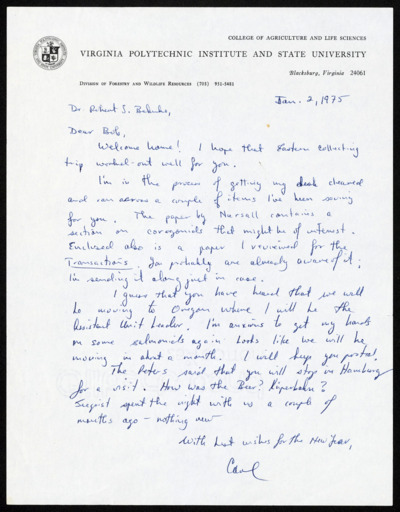 COLLEGE OF AGRICULTURE AND LIFE SCIENCES
VIRGINIA POLYTECHNIC INSTITUTE AND STATE UNIVERSITY
Blacksburg, Virginia 24061
DIVISION OF FORESTRY AND WILDLIFE RESOURCES (703) 951-5481
Jan. 2, 1975
Dr Robert J. Behnke,
Dear Bob,
Welcome home! I hope that Eastern collecting
trip worked-out well for you.
I'm in the process of getting my desk cleaned
and ran across a couple of items I've been saving
for you. The paper by Nursall contains a
section on coregonids that might be of interest.
Enclosed also is a paper I reviewed for the
Transactions. You probably are already aware of it;
I'm sending it along just in case.
I guess that you have heard that we will
be moving to Oregon where I will be the
Assistant Unit Leader. I'm anxious to get my hands
on some salmonids again. Looks like we will be
moving in about a month. I will keep you posted.
The Peters said that you will stop in Hamburg
for a visit. How was the Beer?
spent the night with us a couple of
months ago - nothing new
With best wishes for the New Year,
Carl